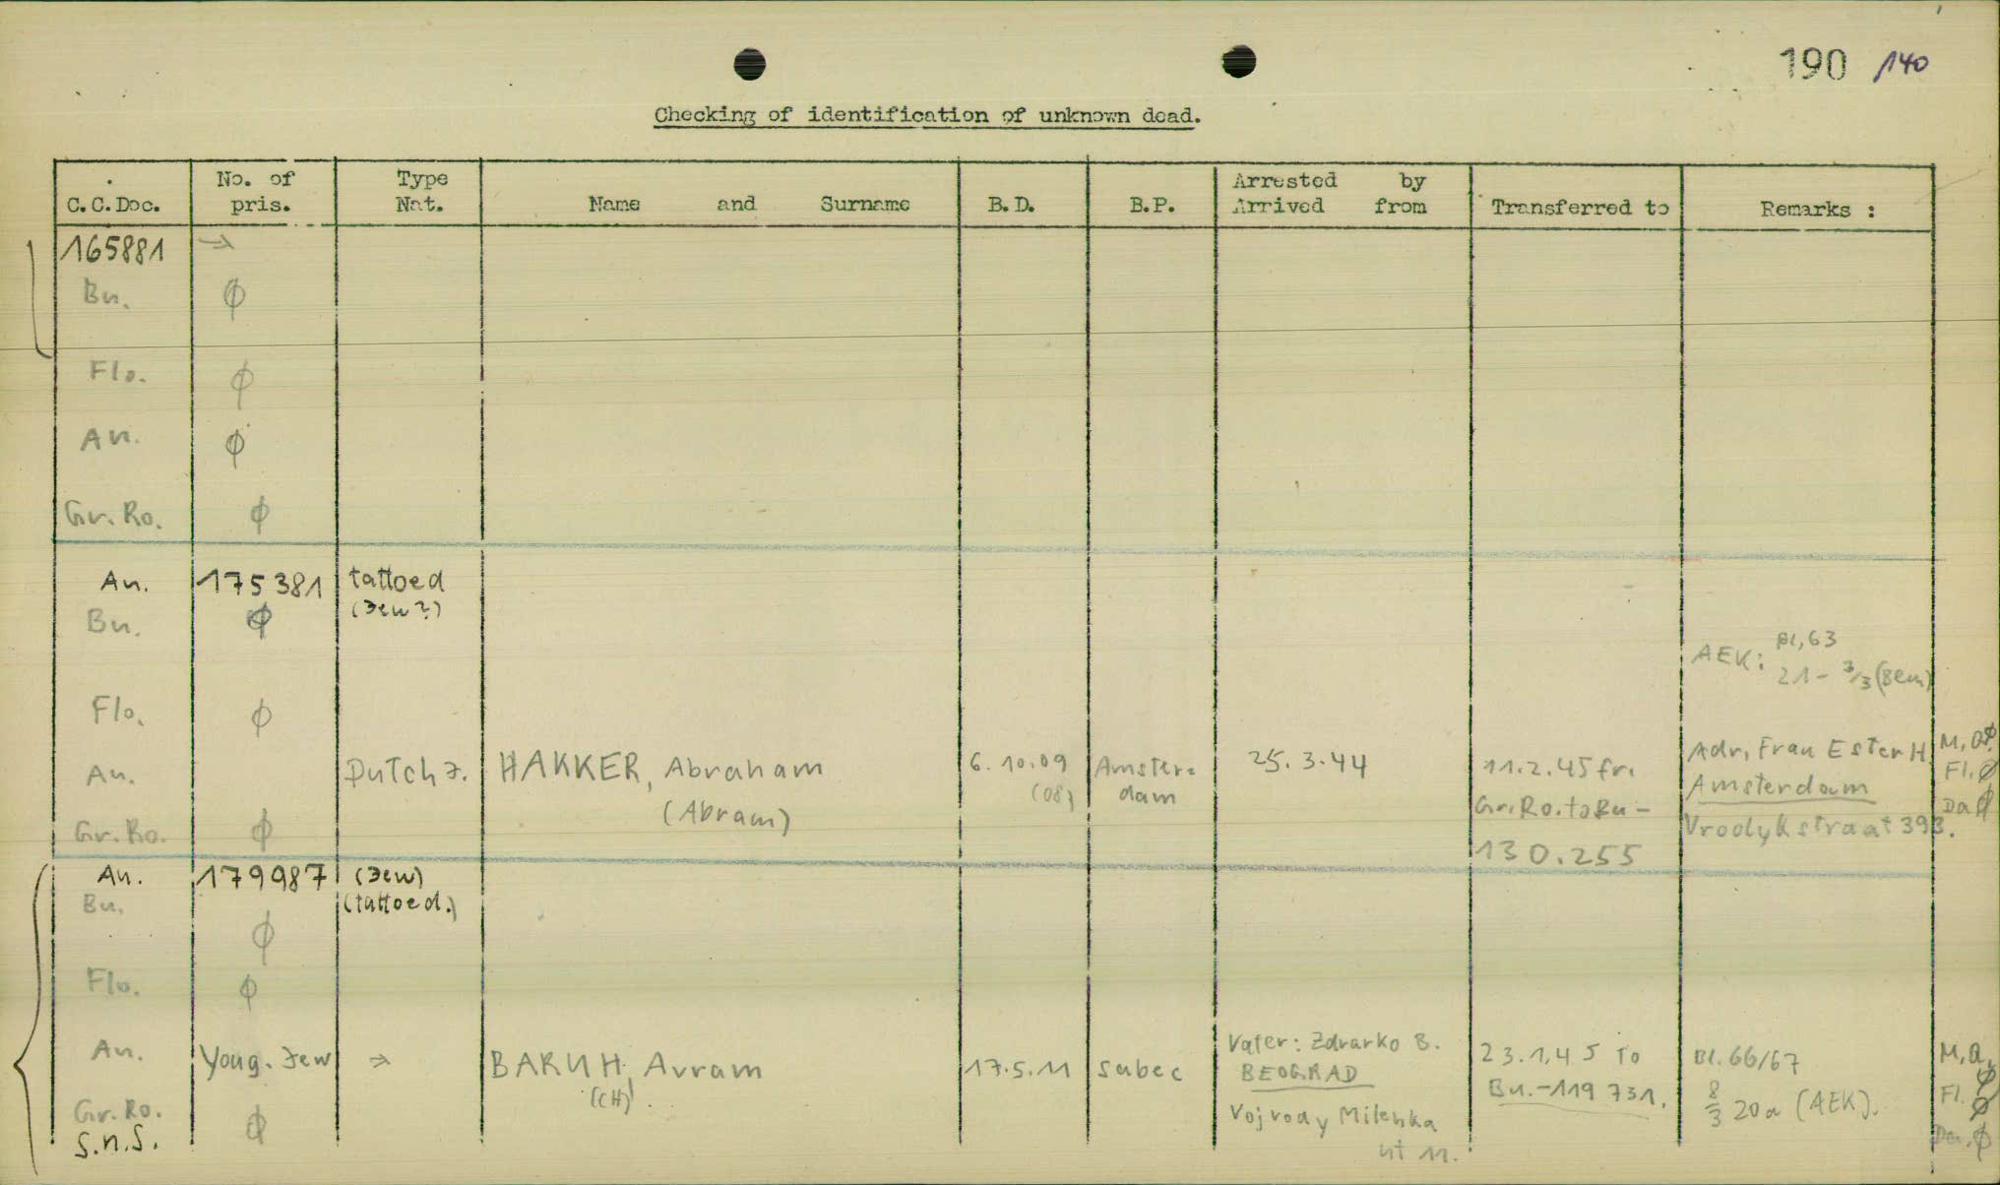 190 140
Checking of identification of unknown dead.
C.C.Doc. No. of pris. Type Nat. Name and Surname B.D. B.P. Arrested by Arrived from Transferred to Remarks :
165881 →
Bu. ϕ
Flo. ϕ
An. ϕ
Gr. Ro. ϕ
An. 175381 tattoed
(Jew?)
Bu. ϕ
AEK: Bl, 63
21 - 3/3 (Bem)
Flo. ϕ
An. Dutch J. HAKKER, Abraham 6.10.09 Amster= 25.3.44 11.2.45 fr. Adr, Frau Ester H. M, a ϕ
(Abram) (08) dam Gr. Ro. to Bu - Amsterdam Fl. ϕ
Gr. Ro. ϕ 130.255 Vroolykstraat 393. Da ϕ
An. 179987 (Jew)
Bu. ϕ (tattoed.)
Flo. ϕ
An. Youg. Jew → BARUH, Avram 17.5.11 Sabec Vater: Zdrarko B. 23.1.45 to Bl. 66/67 M, a, ϕ
(CH) BEOGRAD Bu. - 119 731. 8/3 20a (AEK). Fl. ϕ
Gr. Ro. ϕ Vojvody Milenka Da. ϕ
S.n.S. ut 11.